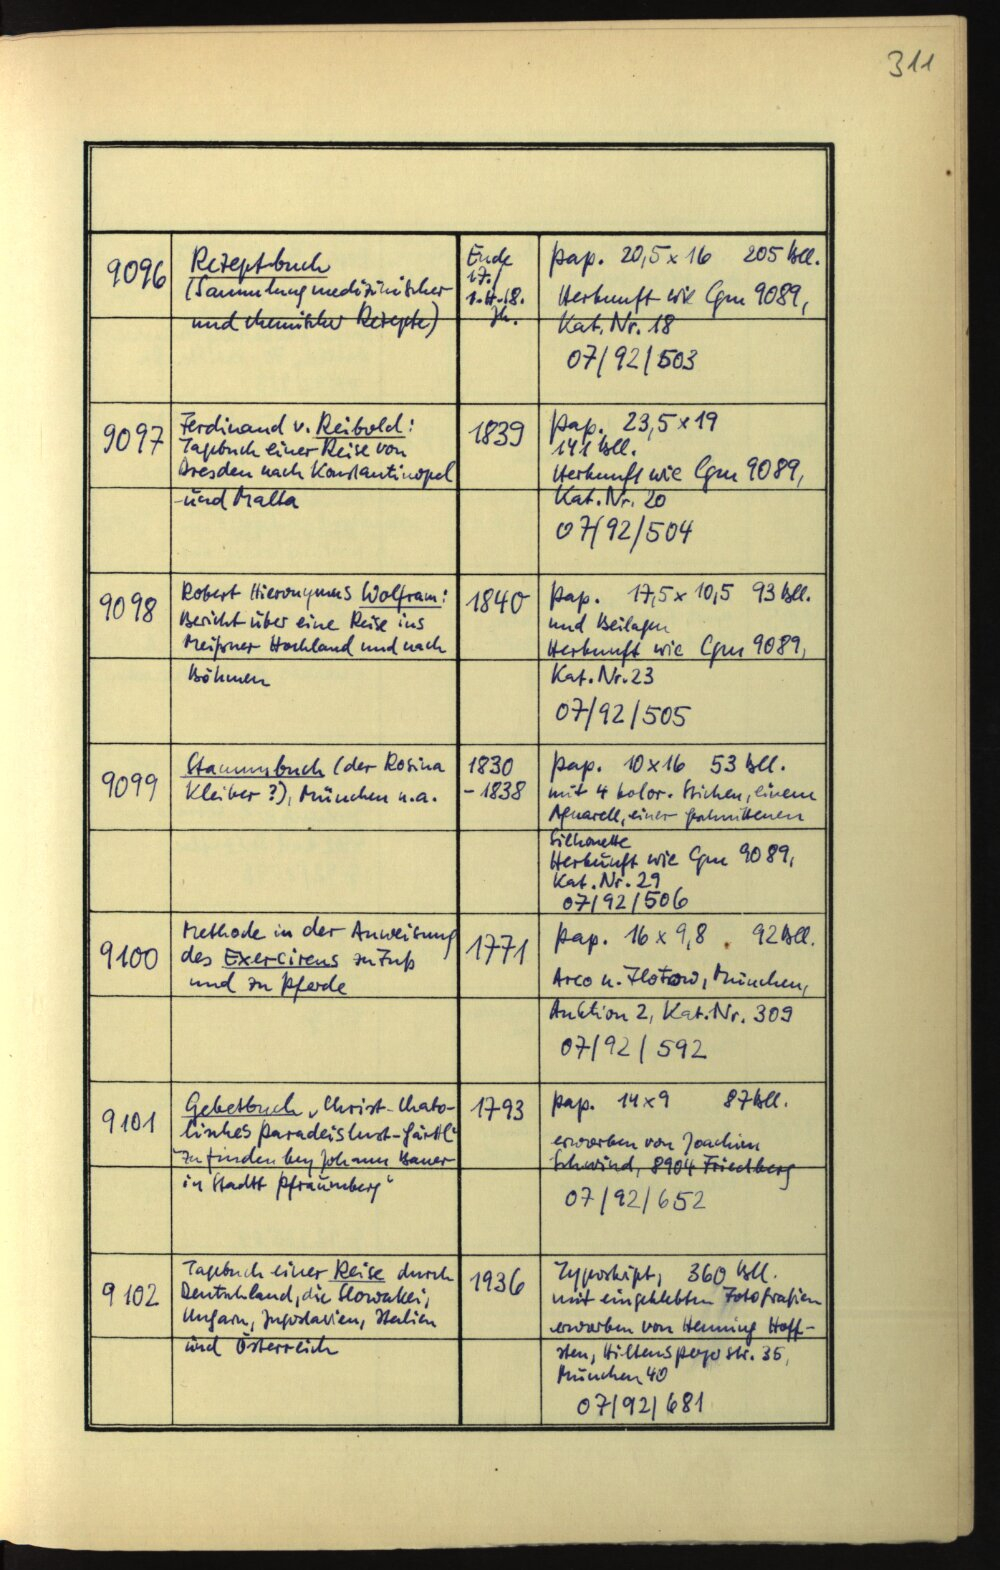 311
9096
Rezeptbuch
(Sammlung medizinischer
und chemischer Rezepte)
Ende
17./
1.H.18.
Jh.
Pap. 20,5 x 16 205 Bll.
Herkunft wie Cgm 9089,
Kat. Nr. 18
07/92/503
9097
Ferdinand v. Reibold:
Tagebuch einer Reise von
Dresden nach Konstantinopel
und Malta
1839
Pap. 23,5 x 19
141 Bll.
Herkunft wie Cgm 9089,
Kat. Nr. 20
07/92/504
9098
Robert Hieronymus Wolfram:
Bericht über eine Reise ins
Meißner Hochland und nach
Böhmen
1840
Pap. 17,5 x 10,5 93 Bll.
und Beilagen
Herkunft wie Cgm 9089,
Kat. Nr. 23
07/92/505
9099
Stammbuch (der Rosina
Kleiber ?), München u.a.
1830
- 1838
Pap. 10 x 16 53 Bll.
mit 4 kolor. Stichen, einem
Aquarell, einer geschnittenen
Silhouette
Herkunft wie Cgm 9089,
Kat. Nr. 29
07/92/506
9100
Methode in der Anweisung
des Exercirens zu Fuß
und zu Pferde
1771
Pap. 16 x 9,8 92 Bll.
Arco u. Flotow, München,
Auktion 2, Kat. Nr. 309
07/92/592
9101
Gebetbuch „Christ-Chato-
lisches Paradeislust-Gärtl"
"zu finden bey Johann Bauer
in Stadtt Pfraumberg"
1793
Pap. 14 x 9 87 Bll.
erworben von Joachim
Schwind, 8904 Friedberg
07/92/652
9102
Tagebuch einer Reise durch
Deutschland, die Slowakei,
Ungarn, Jugoslavien, Italien
und Österreich
1936
Typoskript, 360 Bll.
mit eingeklebten Fotografien
erworben von Henning Hoff-
sten, Hiltenspergerstr. 35,
München 40
07/92/681